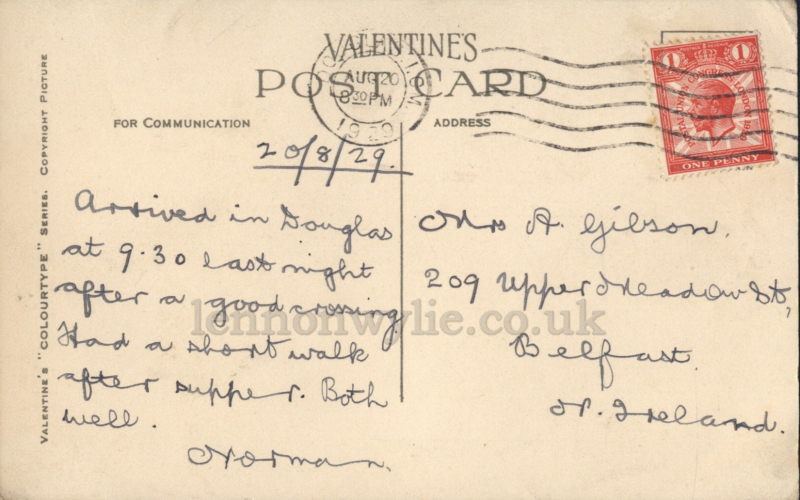 VALENTINE'S
POST CARD
FOR COMMUNICATION
ADDRESS
AUG 20
8 30 PM
1929
POSTAL UNION CONGRESS LONDON 1929
1 1
ONE PENNY
20/8/29.
Arrived in Douglas
at 9.30 last night
after a good crossing
Had a short walk
after supper. Both
well.
Norman.
Mrs A. Gibson.
209 Upper Meadow St,
Belfast.
N. Ireland.
VALENTINE'S "COLOURTYPE" SERIES. COPYRIGHT PICTURE
lennonwylie.co.uk